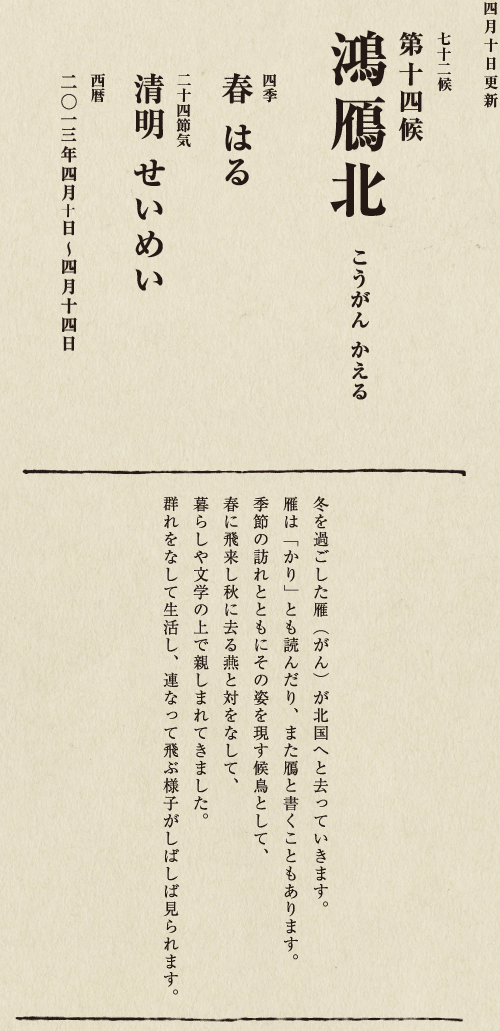 四月十日更新
七十二候
第十四候
鴻鴈北 こうがん かえる
四季
春 はる
二十四節気
清明 せいめい
西暦
二〇一三年四月十日〜四月十四日
冬を過ごした雁（がん）が北国へと去っていきます。
雁は「かり」とも読んだり、また鴈と書くこともあります。
季節の訪れとともにその姿を現す候鳥として、
春に飛来し秋に去る燕と対をなして、
暮らしや文学の上で親しまれてきました。
群れをなして生活し、連なって飛ぶ様子がしばしば見られます。